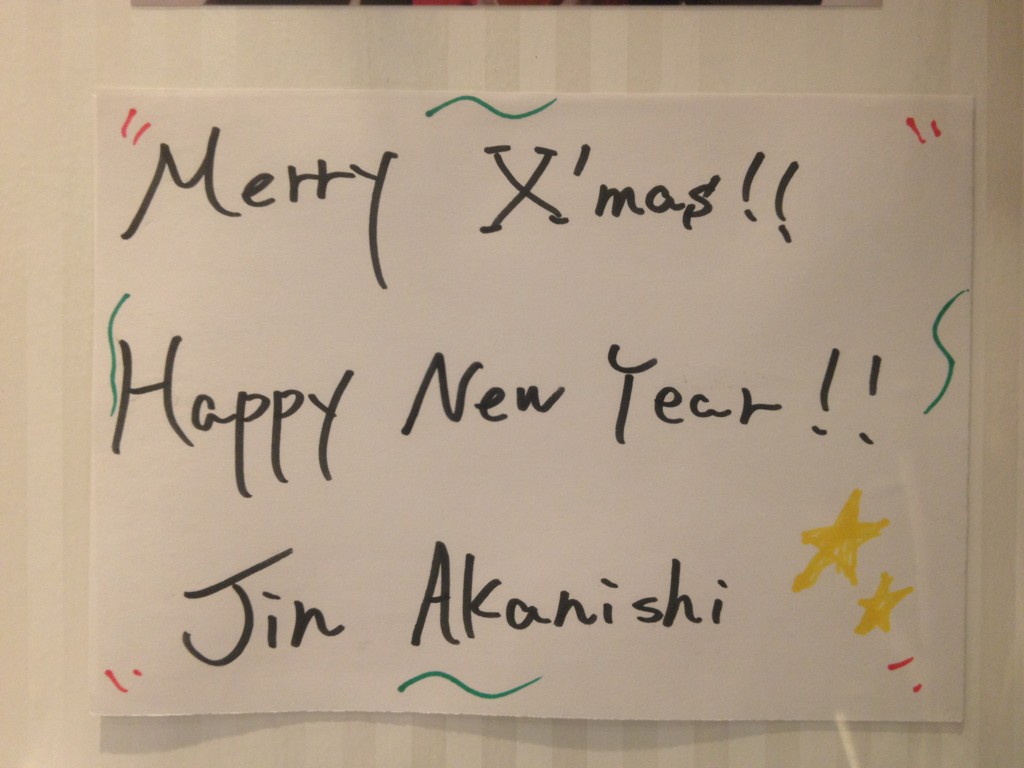 Merry X'mas!!
Happy New Year!!
Jin Akanishi